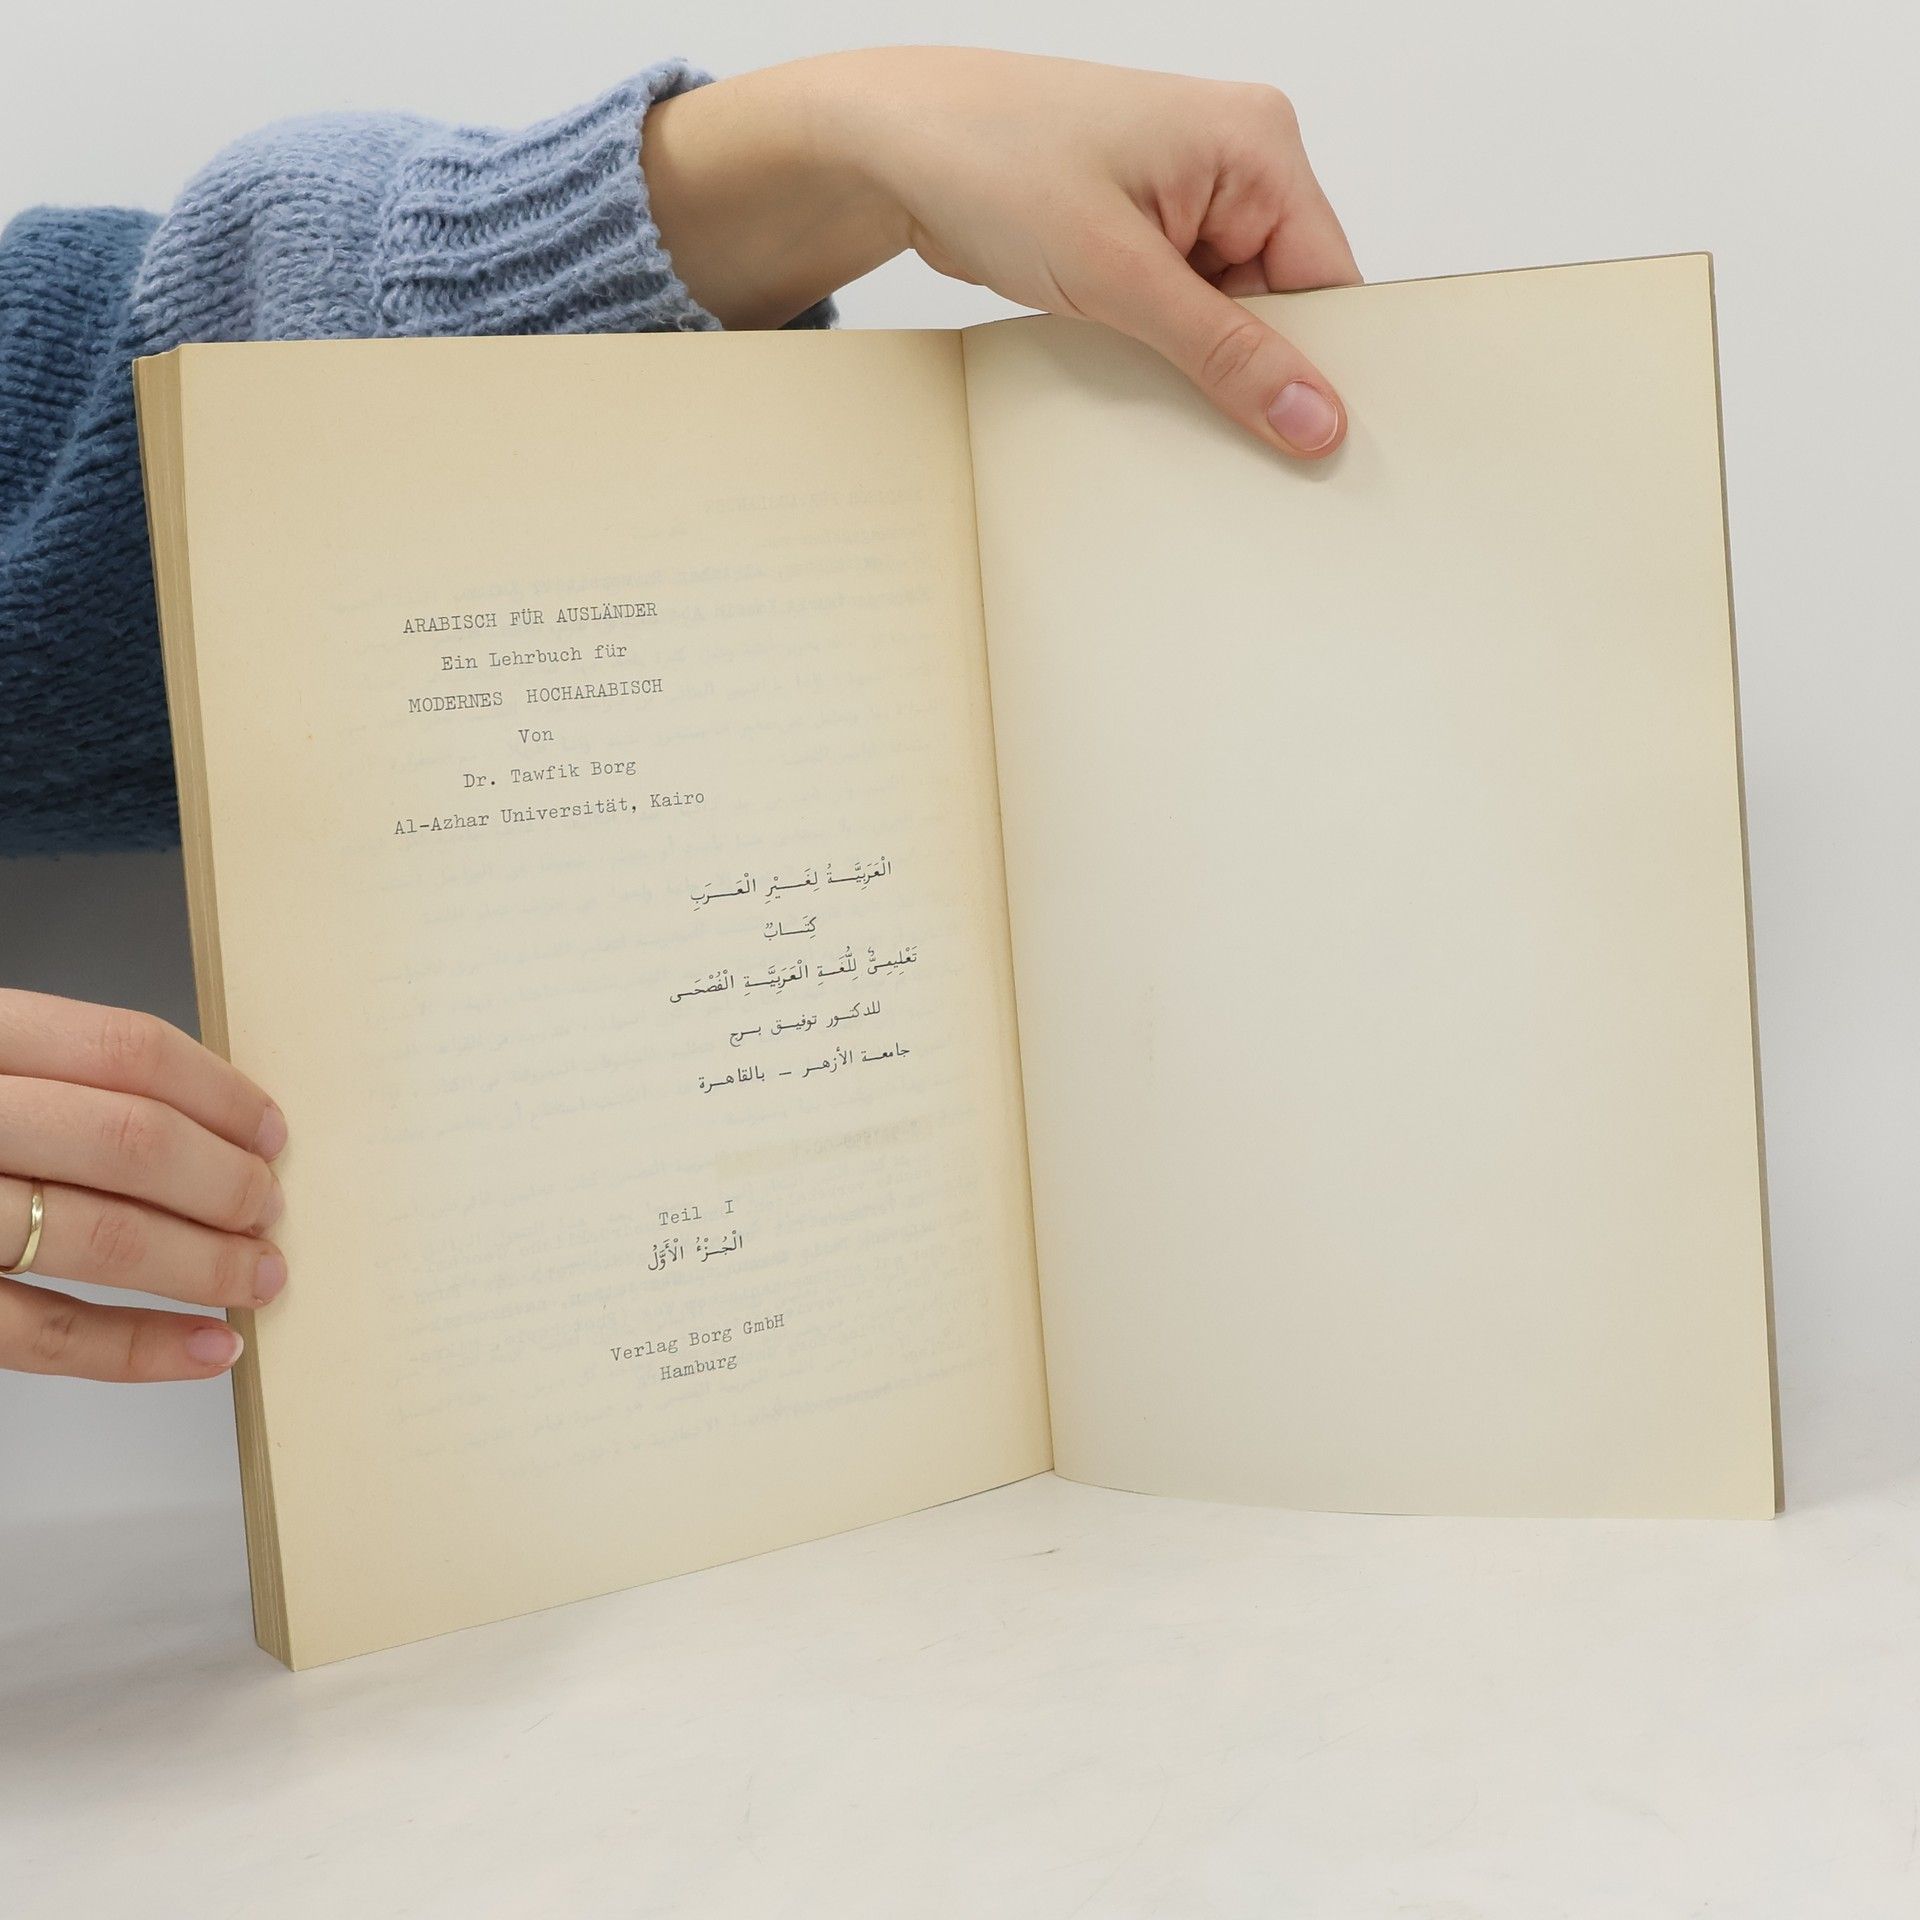 ARABISCH FÜR AUSLÄNDER
Ein Lehrbuch für
MODERNES HOCHARABISCH
Von
Dr. Tawfik Borg
Al-Azhar Universität, Kairo
الْعَرَبِيَّـــةُ لِغَـــيْرِ الْعَـــرَبِ
كِتَـــابٌ
تَعْلِيمِـيٌّ لِلُّغَـةِ الْعَرَبِيَّـةِ الْفُصْحَـى
للدكتـور توفيـق بـرج
جامعـة الأزهـر – بالقاهـرة
Teil I
الْجُـزْءُ الْأَوَّلُ
Verlag Borg GmbH
Hamburg